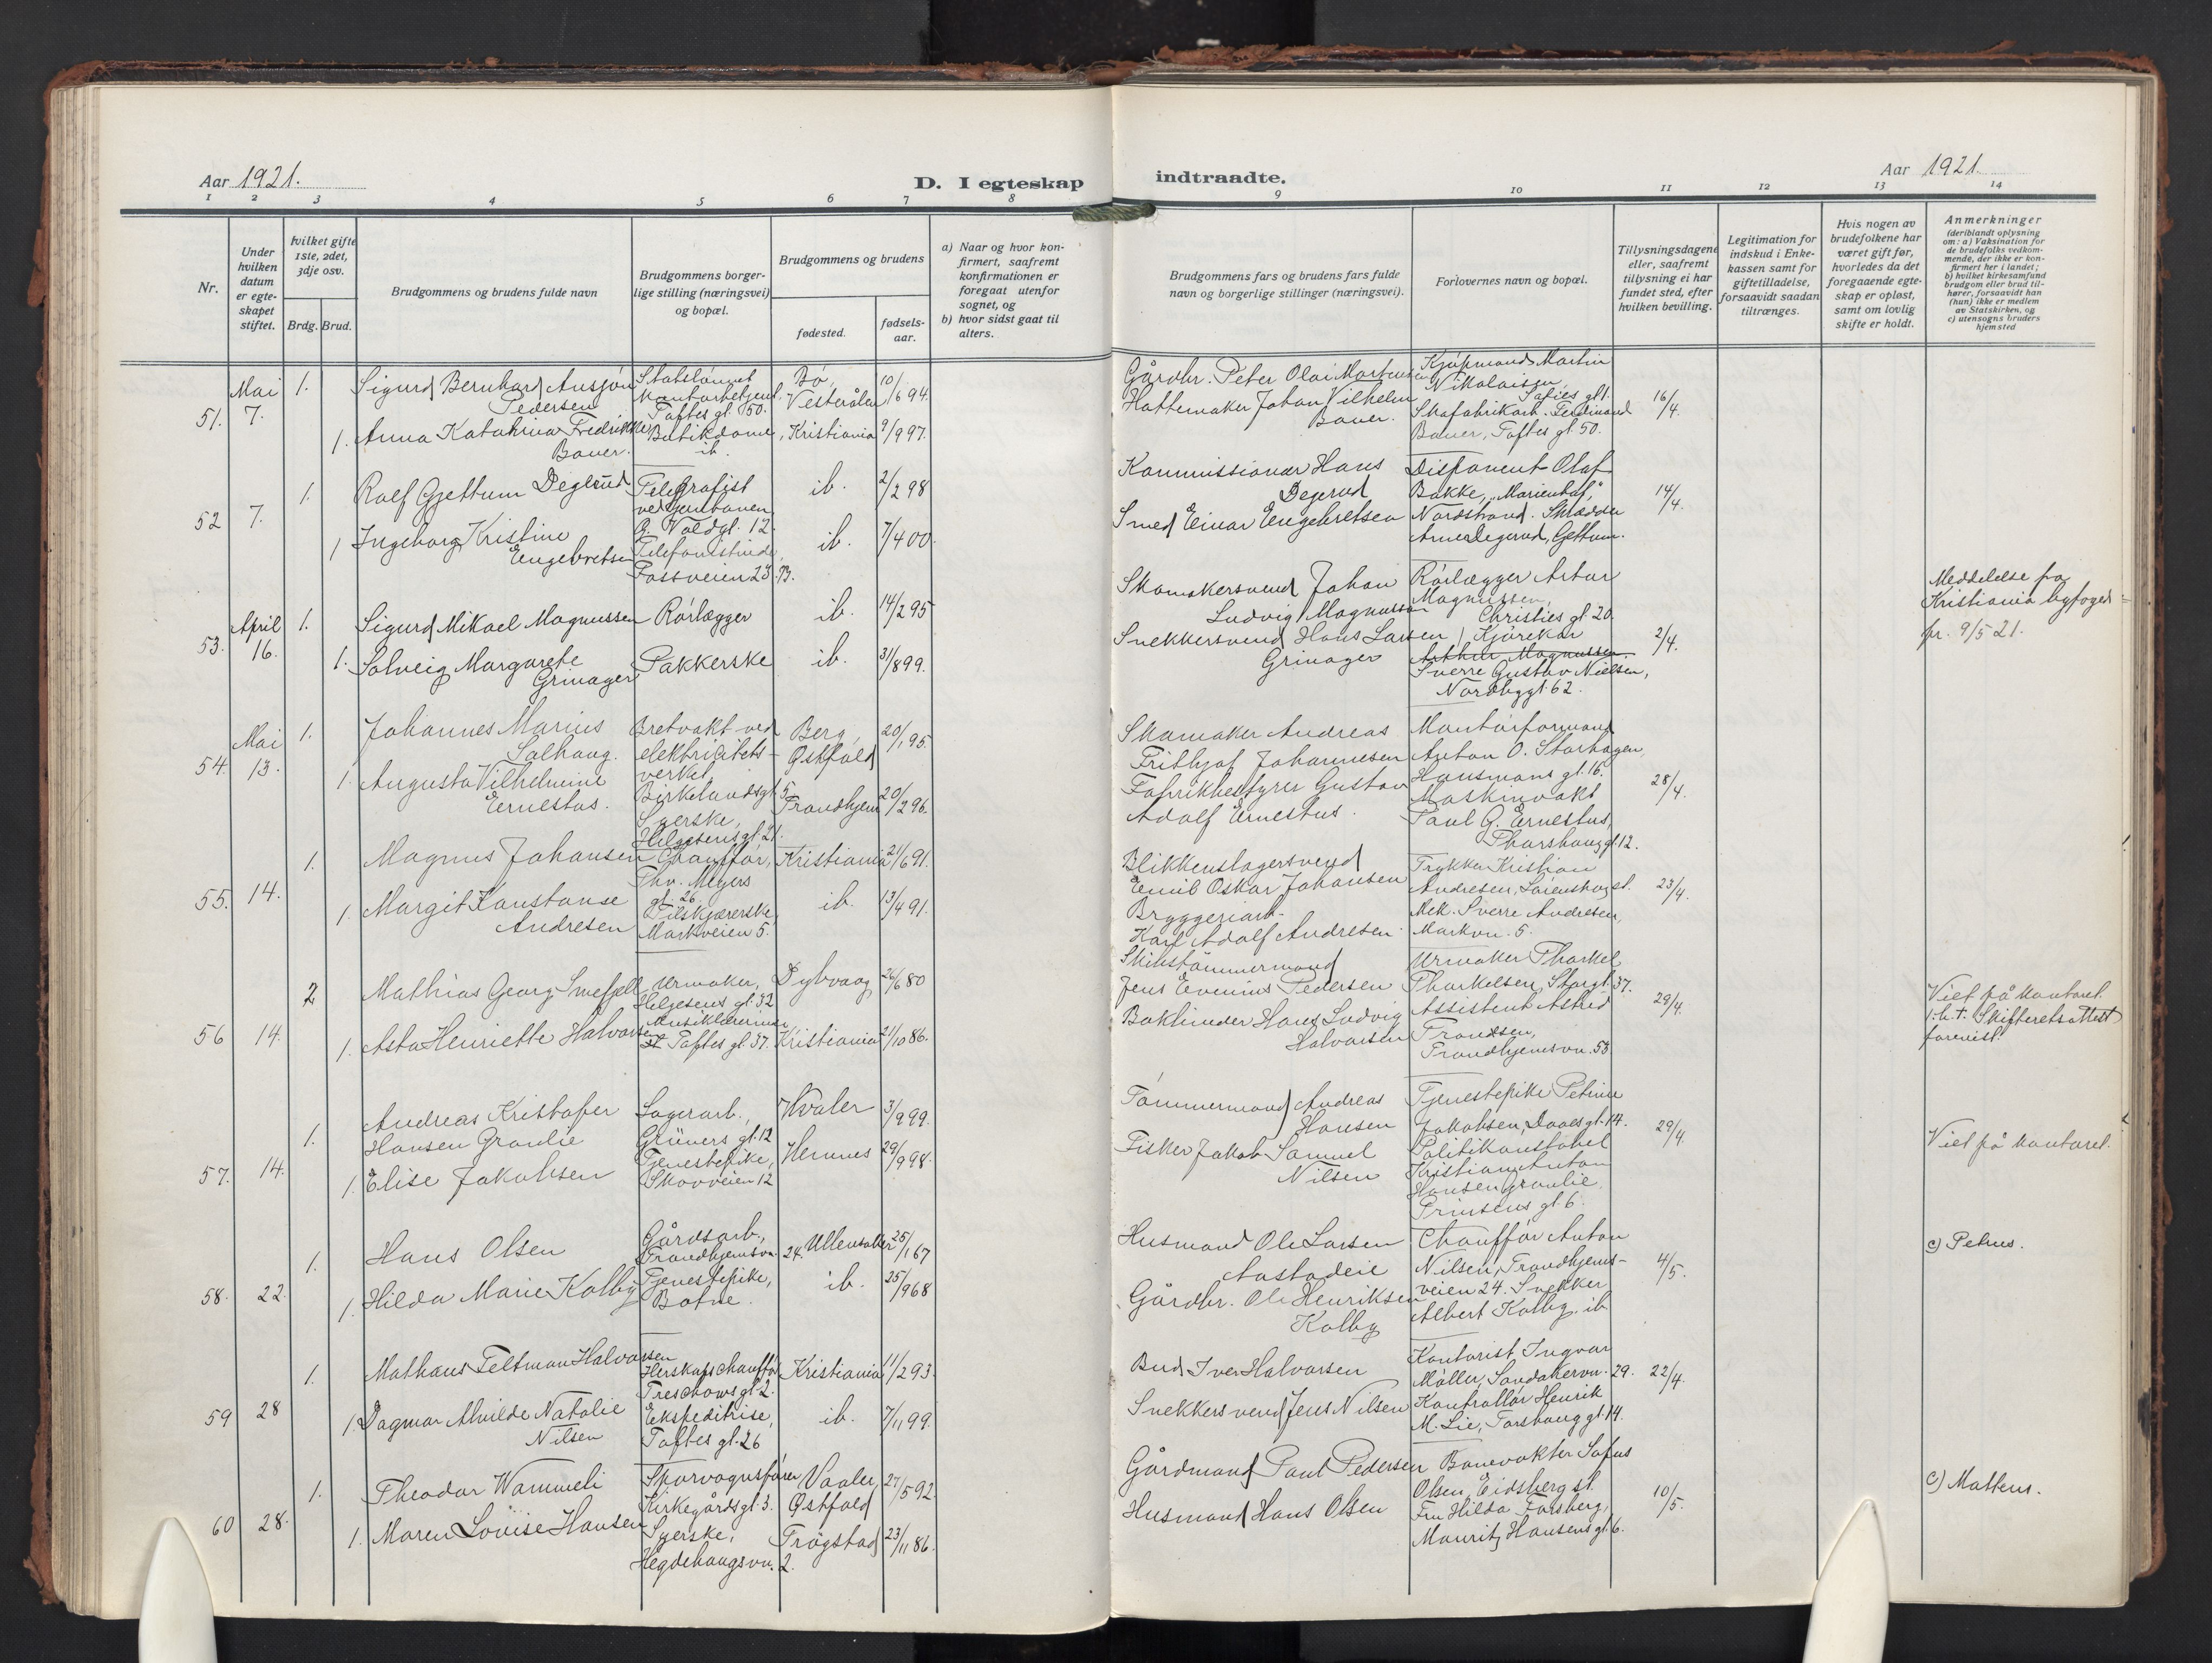 Aar 1921.
D. I egteskap
indtraadte.
Aar 1921.
1 2 3 4 5 6 7 8 9 10 11 12 13 14
Nr.
Under hvilken datum er egteskapet stiftet.
hvilket gifte 1ste, 2det, 3dje osv.
Brdg. Brud.
Brudgommens og brudens fulde navn
Brudgommens borgerlige stilling (næringsvei) og bopæl.
Brudgommens og brudens
fødested.
fødselsaar.
a) Naar og hvor konfirmert, saafremt konfirmationen er foregaat utenfor sognet, og
b) hvor sidst gaat til alters.
Brudgommens fars og brudens fars fulde navn og borgerlige stillinger (næringsvei).
Forlovernes navn og bopæl.
Tillysningsdagene eller, saafremt tillysning ei har fundet sted, efter hvilken bevilling.
Legitimation for indskud i Enkekassen samt for giftetilladelse, forsaavidt saadan tiltrænges.
Hvis nogen av brudefolkene har været gift før, hvorledes da det foregaaende egteskap er opløst, samt om lovlig skifte er holdt.
Anmerkninger (deriblandt oplysning om: a) Vaksination for de brudefolks vedkommende, der ikke er konfirmert her i landet; b) hvilket kirkesamfund brudgom eller brud tilhører, forsaavidt han (hun) ikke er medlem av Statskirken, og c) utensogns bruders hjemsted
51. Mai 7.
1. Sigurd Bernhard Ansjøn Pedersen
Taftes gt. 50.
Bø, Vesterålen
10/6 94.
1. Anna Katahrina Fredrikke Bauer.
Butikdame, ib.
Kristiania
9/9 97.
Gårdbr. Peter Olai Martensen
Hattemaker Johan Vilhelm Bauer.
Kjøpmand Martin Nikolaisen,
Skofabrikarb. Ferdinand Bauer, Taftes gt. 50.
16/4.
52 7.
1. Rolf Gjettum Degerud
Telegrafist ved jernbanen
12.
ib.
2/2 98
1 Ingeborg Kristine Engebretsen
Telefonistinde, Fossveien 23 B.
ib.
7/4 00.
Kommissionær Hans Degerud
Smed Einar Engebretsen
Disponent Olaf Bakke, „Marienhof,“ Nordstrand. Skrædder Arne Degerud, Gettum.
14/4.
53. April 16.
1. Sigurd Mikael Magnussen
Rørlægger
ib.
14/2 95
1. Solveig Margarete Grinager
Pakkerske
ib.
31/8 99.
Skomakersvend Johan Ludvig Magnussen
Snekkersvend Hans Larsen Grinager
Rørlægger Artur Magnussen, Christies gt 20.
Kjørekar
Arthur Magnussen.
Sverre Gustav Nielsen,
Nordbygt. 62.
2/4.
Meddelelse fra Kristiania byfoged
fr. 9/5 21.
54. Mai 13.
1. Johannes Marius Solhaug.
Bretvakt ved elektricitetsverket, Birkelandsgt 5
Berg, Østfold
20/1 95.
1. Augusta Vilhelmine Ernestus.
Syerske, Helgesens gt. 21.
Trondhjem
20/2 96.
Skomaker Andreas Frithjof Johannesen
Fabrikbestyrer Gustav Adolf Ernestus.
Montørformand Anton O. Storhagen, Hausmans gt. 16.
Maskinvakt Paul G. Ernestus, Thorshaug gt. 12.
28/4.
55. 14.
1. Magnus Johansen
Chauffør, Thv. Meyers gt. 26.
Kristiania
21/6 91.
1. Margit Konstanse Andresen
Filskjærerske, Markveien 5.
ib.
13/4 91.
Blikkenslagersvend Emil Oskar Johansen
Bryggeriarb. Karl Adolf Andresen.
Trykker Kristian Andresen, Lørenskog st.
Mek. Sverre Andresen, Markvn. 5.
23/4.
56 14.
2 Mathias Georg Smefjell
Urmaker, Helgesens gt. 32
Dybvaag
26/6 80
1. Asta Henriette Halvorsen
Musiklærerinde, Taftes gt. 37.
Kristiania
21/10 86.
Skibstømmermand Jens Evenius Pedersen
Bokbinder Hans Ludvig Halvorsen
Urmaker Thorkel Thorkelsen, Storgt. 37.
Assistent Astrid Trondsen, Trondhjemsvn. 53.
29/4.
Viet på kontoret.
Skifteretsattest forevist.
57. 14.
1. Andreas Kristofer Hansen Granlie
Lagerarb., Grüners gt. 12
Hvaler
3/9 99.
1. Elise Jakobsen
Tjenestepike, Skovveien 12
Hemnes
29/9 98.
Tømmermand Andreas Hansen
Fisker Jakob Samuel Nilsen
Tjenestepike Petrine Jakobsen, Daaes gt. 14.
Politikonstabel Kristian Anton Hansen Granlie, Prinsens gt. 6.
29/4
Viet på kontoret.
58. 22.
1. Hans Olsen
Gårdsarb., Trondhjemsvn. 24.
Ullensaker
25/1 67
1. Hilda Marie Kolby
Tjenestepike, Botne.
ib.
25/9 68
Husmand Ole Larsen Aastadeie
Gårdbr. Ole Henriksen Kolby
Chauffør Anton Nilsen, Trondhjemsveien 24. Snekker Albert Kolby, ib
4/5.
c) Petrus.
59 28
1. Mathæus Feltman Halvorsen
Herskapschauffør Treschows gt. 2.
Kristiania
11/2 93.
1. Dagmar Alvilde Natalie Nilsen
Ekspeditrise, Toftes gt. 26
ib.
7/11 99.
Bud Iver Halvorsen
Snekkersvend Jens Nilsen
Kontorist Ingvar Møller, Sandakervn. 29.
Kontrollør Henrik M. Lie, Torshaug gt. 14.
22/4.
60 28.
1. Theodor Wammeli
Sporvognsfører Kirkegårdsgt. 3.
Vaaler, Østfold
27/5 92.
1. Maren Lovise Hansen
Syerske, Hegdehaugsvn. 2.
Trøgstad
23/11 86.
Gårdmand Paul Pedersen
Husmand Hans Olsen
Banevakter Sofus Olsen, Eidsberg st.
Fru Hilda Forsberg, Mauritz Hansens gt. 6.
10/5.
c) Matteus.